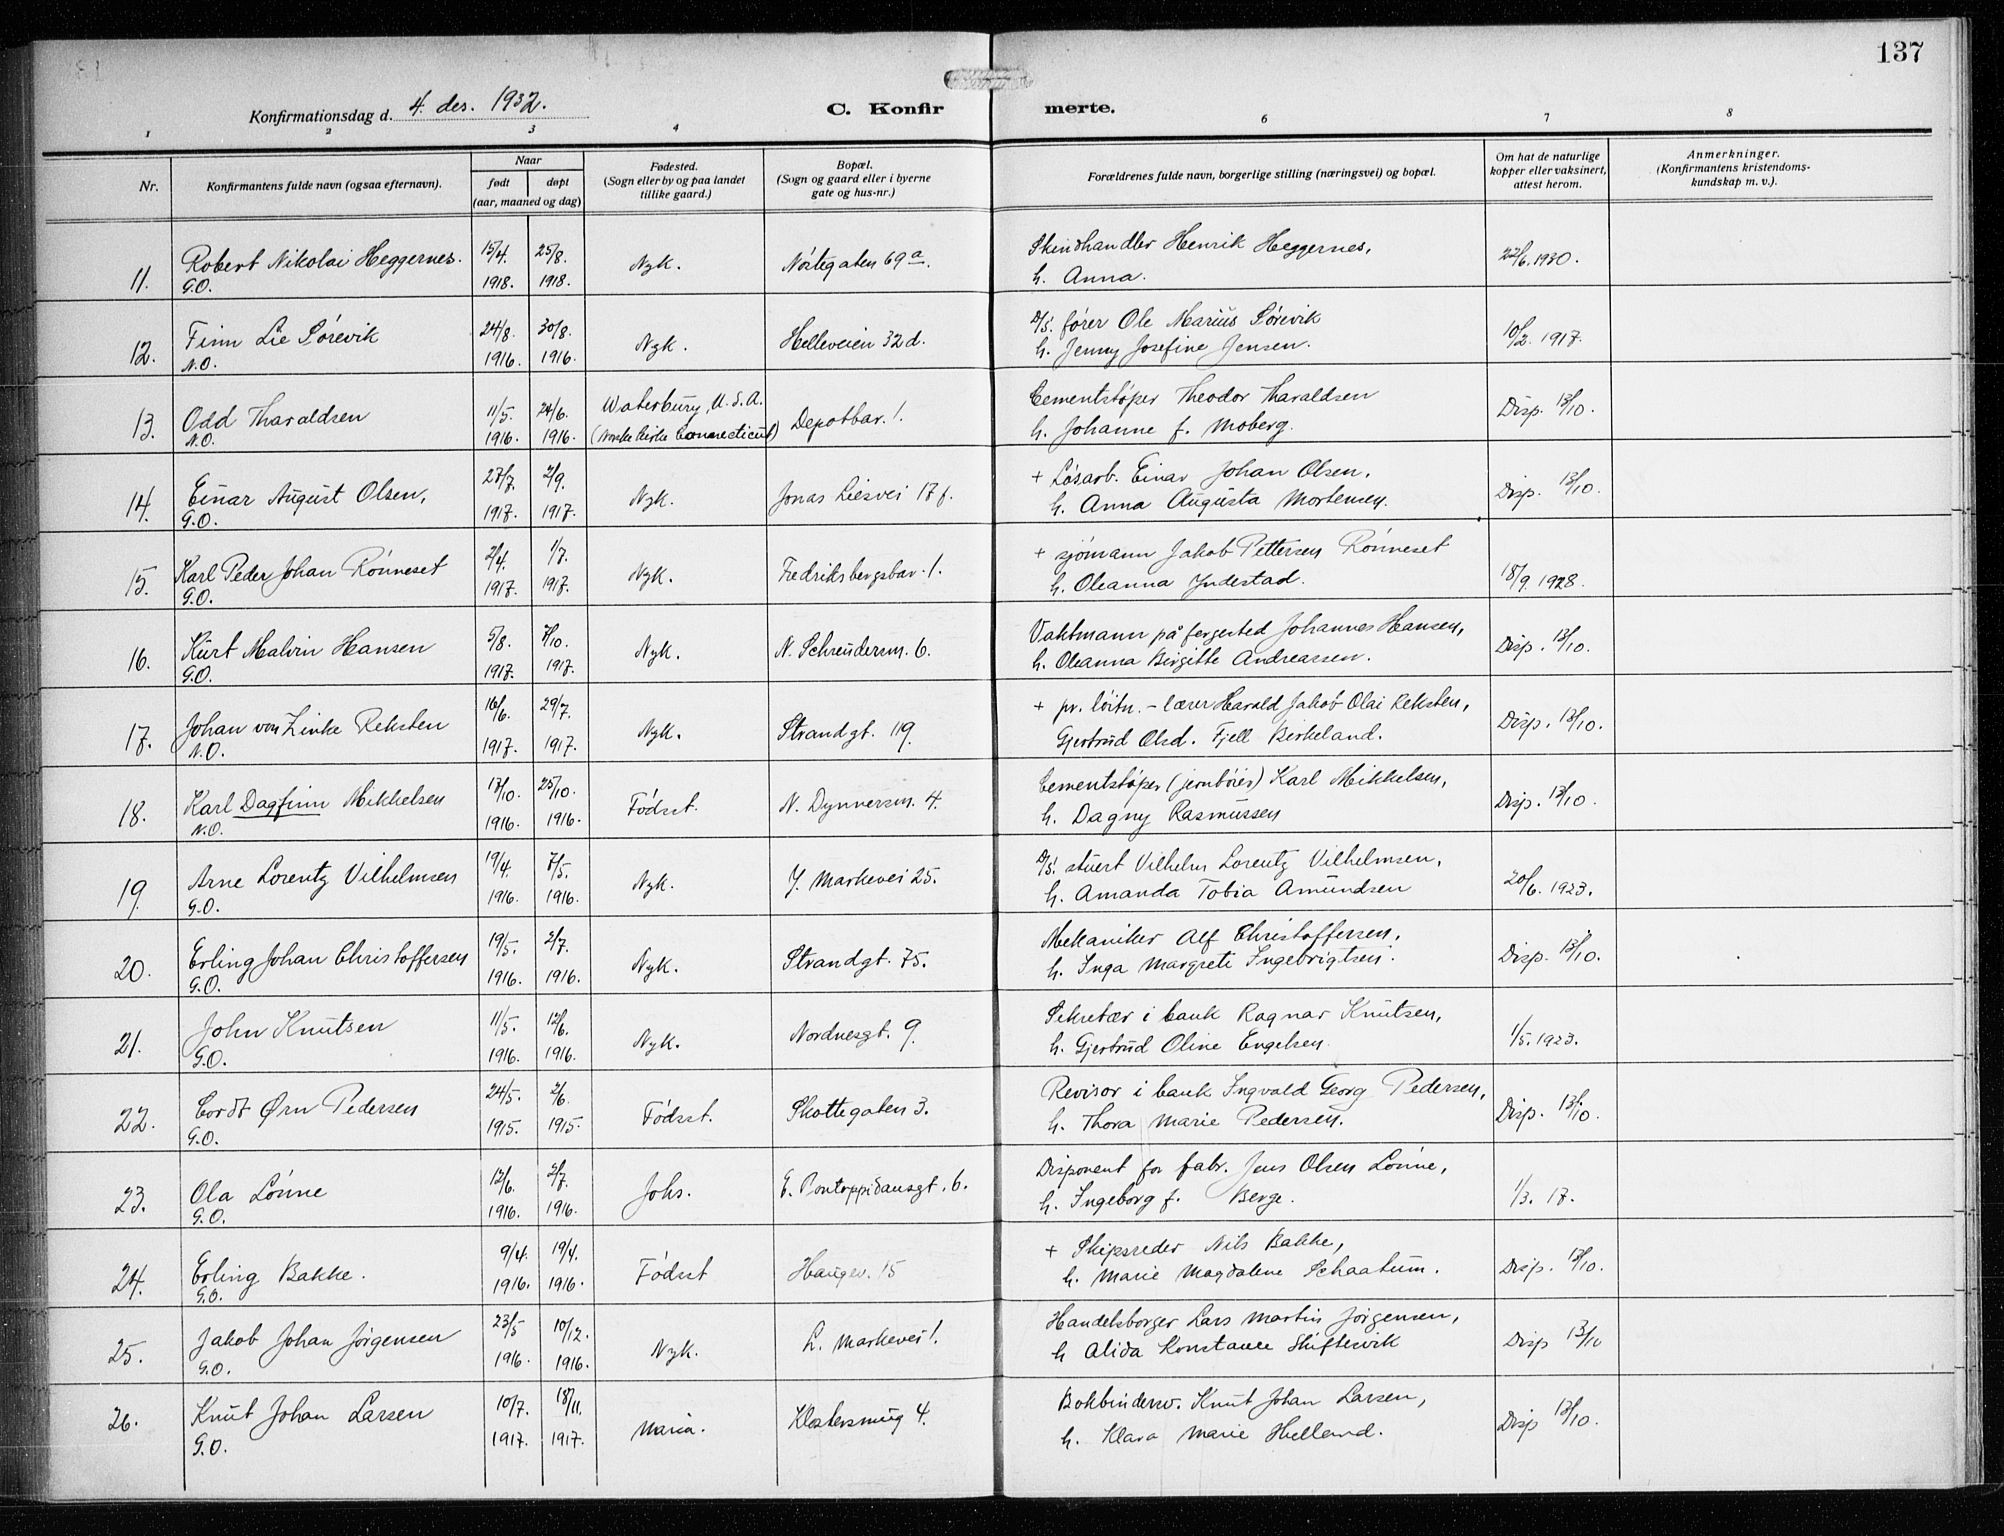 137
Konfirmationsdag d. 4. des. 1932.
C. Konfir merte.
1 2 3 4 6 7 8
Nr.
Konfirmantens fulde navn (ogsaa efternavn).
Naar
født døpt
(aar, maaned og dag)
Fødested.
(Sogn eller by og paa landet
tillike gaard.)
Bopæl.
(Sogn og gaard eller i byerne
gate og hus-nr.)
Forældrenes fulde navn, borgerlige stilling (næringsvei) og bopæl.
Om hat de naturlige
kopper eller vaksinert,
attest herom.
Anmerkninger.
(Konfirmantens kristendoms-
kundskap m. v.).
11. Robert Nikolai Heggernes. 15/4. 25/8. Nyk. Nøstegaten 69 a. Skindhandler Henrik Heggernes, 22/6. 1920.
G.O. 1918. 1918. h. Anna.
12. Finn Lie Sørevik 24/8. 30/8. Nyk. Helleveien 32 d. D/S. fører Ole Marius Sørevik 10/2. 1917.
N.O. 1916. 1916. h. Jenny Josefine Jensen.
13. Odd Tharaldsen 11/5. 24/6. Waterbury, U.S.A. Depotbar. 1. Cementstøper Theodor Tharaldsen Disp. 13/10.
N.O. 1916. 1916. (Norske kirke Connecticut) h. Johanne f. Moberg.
14. Einar August Olsen, 27/7. 2/9. Nyk. Jonas Liesvei 17 f. + Løsarb. Einar Johan Olsen, Disp. 13/10.
G.O. 1917. 1917. h. Anna Augusta Mortensen.
15. Karl Peder Johan Rønneset 2/4. 1/7. Nyk. Fredriksbergsbar. 1. + sjømann Jakob Pettersen Rønneset 18/9. 1928.
G.O. 1917. 1917. h. Oleanna Yndestad.
16. Kurt Malvin Hansen 5/8. 7/10. Nyk. N. Schreudersm. 6. Vaktmann på fergested Johannes Hansen, Disp. 13/10.
G.O. 1917. 1917. h. Oleanna Birgitte Andreassen.
17. Johan von Zinke Reksten 16/6. 29/7. Nyk. Strandgt. 119. + pr. løitn. - lærer Harald Jakob Olai Reksten, Disp. 13/10.
N.O. 1917. 1917. Gjertrud Olsd. Fjell Birkeland.
18. Karl Dagfinn Mikkelsen 17/10. 25/10. Fødsst. N. Dynnersm. 4. Cementstøper (jernbøier) Karl Mikkelsen, Disp. 13/10.
N.O. 1916. 1916. h. Dagny Rasmussen
19. Arne Lorentz Vilhelmsen 19/4. 7/5. Nyk. Y. Markevei 25. D/S. stuert Vilhelm Lorentz Vilhelmsen, 20/6. 1923.
G.O. 1916. 1916. h. Amanda Tobia Amundsen
20. Erling Johan Christoffersen 19/5. 2/7. Nyk. Strandgt. 75. Mekaniker Alf Christoffersen, Disp. 13/10.
G.O. 1916. 1916. h. Inga Margrete Ingebrigtsen.
21. John Knutsen 11/5. 12/6. Nyk. Nordnesgt. 9. Sekretær i bank Ragnar Knutsen, 1/5. 1923.
G.O. 1916. 1916. h. Gjertrud Oline Engelsen.
22. Cordt Ørn Pedersen 24/5. 2/6. Fødsst. Skottegaten 3. Revisor i bank Ingvald Georg Pedersen, Disp. 13/10.
G.O. 1915. 1915. h. Thora Marie Pedersen.
23. Ola Lønne 12/6. 2/7. Johs. E. Pontoppidansgt. 6. Disponent for fabr. Jens Olsen Lønne, 1/3. 17.
G.O. 1916. 1916. h. Ingeborg f. Berge.
24. Erling Bakke. 9/4. 19/4. Fødsst Haugev. 15 + Skipsreder Nils Bakke, Disp. 13/10.
G.O. 1916. 1916. h. Marie Magdalene Schaatum.
25. Jakob Johan Jørgensen 23/5 10/12. Nyk. L. Markevei 1. Handelsborger Lars Martin Jørgensen, Disp 13/10
G.O. 1916. 1916. h Alida Konstance Skiftesvik
26. Knut Johan Larsen 10/7. 18/11. Maria. Klostersmug 4. Bokbinderw. Knut Johan Larsen, Disp 13/10.
G.O. 1917. 1917. h. Klara Marie Helland.